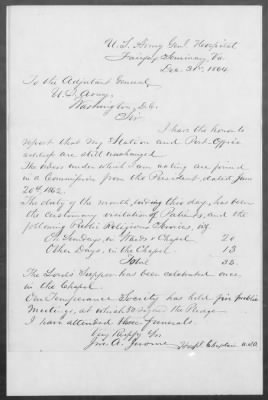 U.S. Army Genl Hospital
Fairfax Seminary, Va.
Dec. 31st, 1864.
To the Adjutant General,
U.S. Army,
Washington, D.C.
Sir
I have the honor to
report that my Station and Post-Office
address are still unchanged.
The orders under which I am acting are found
in a Commission from the President, dated June
20th 1862.
The duty of the month, ending this day, has been
the customary visitation of Patients, and the
following Public Religious Services, viz
On Sundays, in Wards & Chapel 20
Other Days, in the Chapel 13
Total 33
The Lords Supper has been celebrated once
in the Chapel.
Our Temperance Society has held five public
Meetings, at which 30 signed the Pledge.
I have attended three funerals.
Very Respy Yrs
Jno. A. Jerome
Hosp. Chaplain U.S.A.